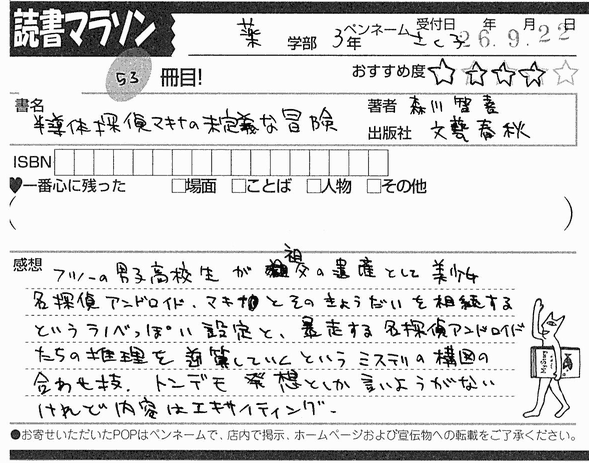 読書マラソン
薬 学部 3年 ペンネーム さく子 受付日 26年9月22日
53 冊目!
おすすめ度 ☆☆☆☆☆
書名 半導体探偵マキナの未定義な冒険
著者 森川智喜
出版社 文藝春秋
ISBN
♥一番心に残った □場面 □ことば □人物 □その他
( )
感想 フツーの男子高校生が祖父の遺産として美少女
名探偵アンドロイド、マキナとそのきょうだいを相続する
というラノベっぽい設定と、暴走する名探偵アンドロイド
たちの推理を逆算していくというミステリの構図の
合わせ技。トンデモ発想としか言いようがない
けれど内容はエキサイティング。
●お寄せいただいたPOPはペンネームで、店内で掲示、ホームページおよび宣伝物への転載をご了承ください。